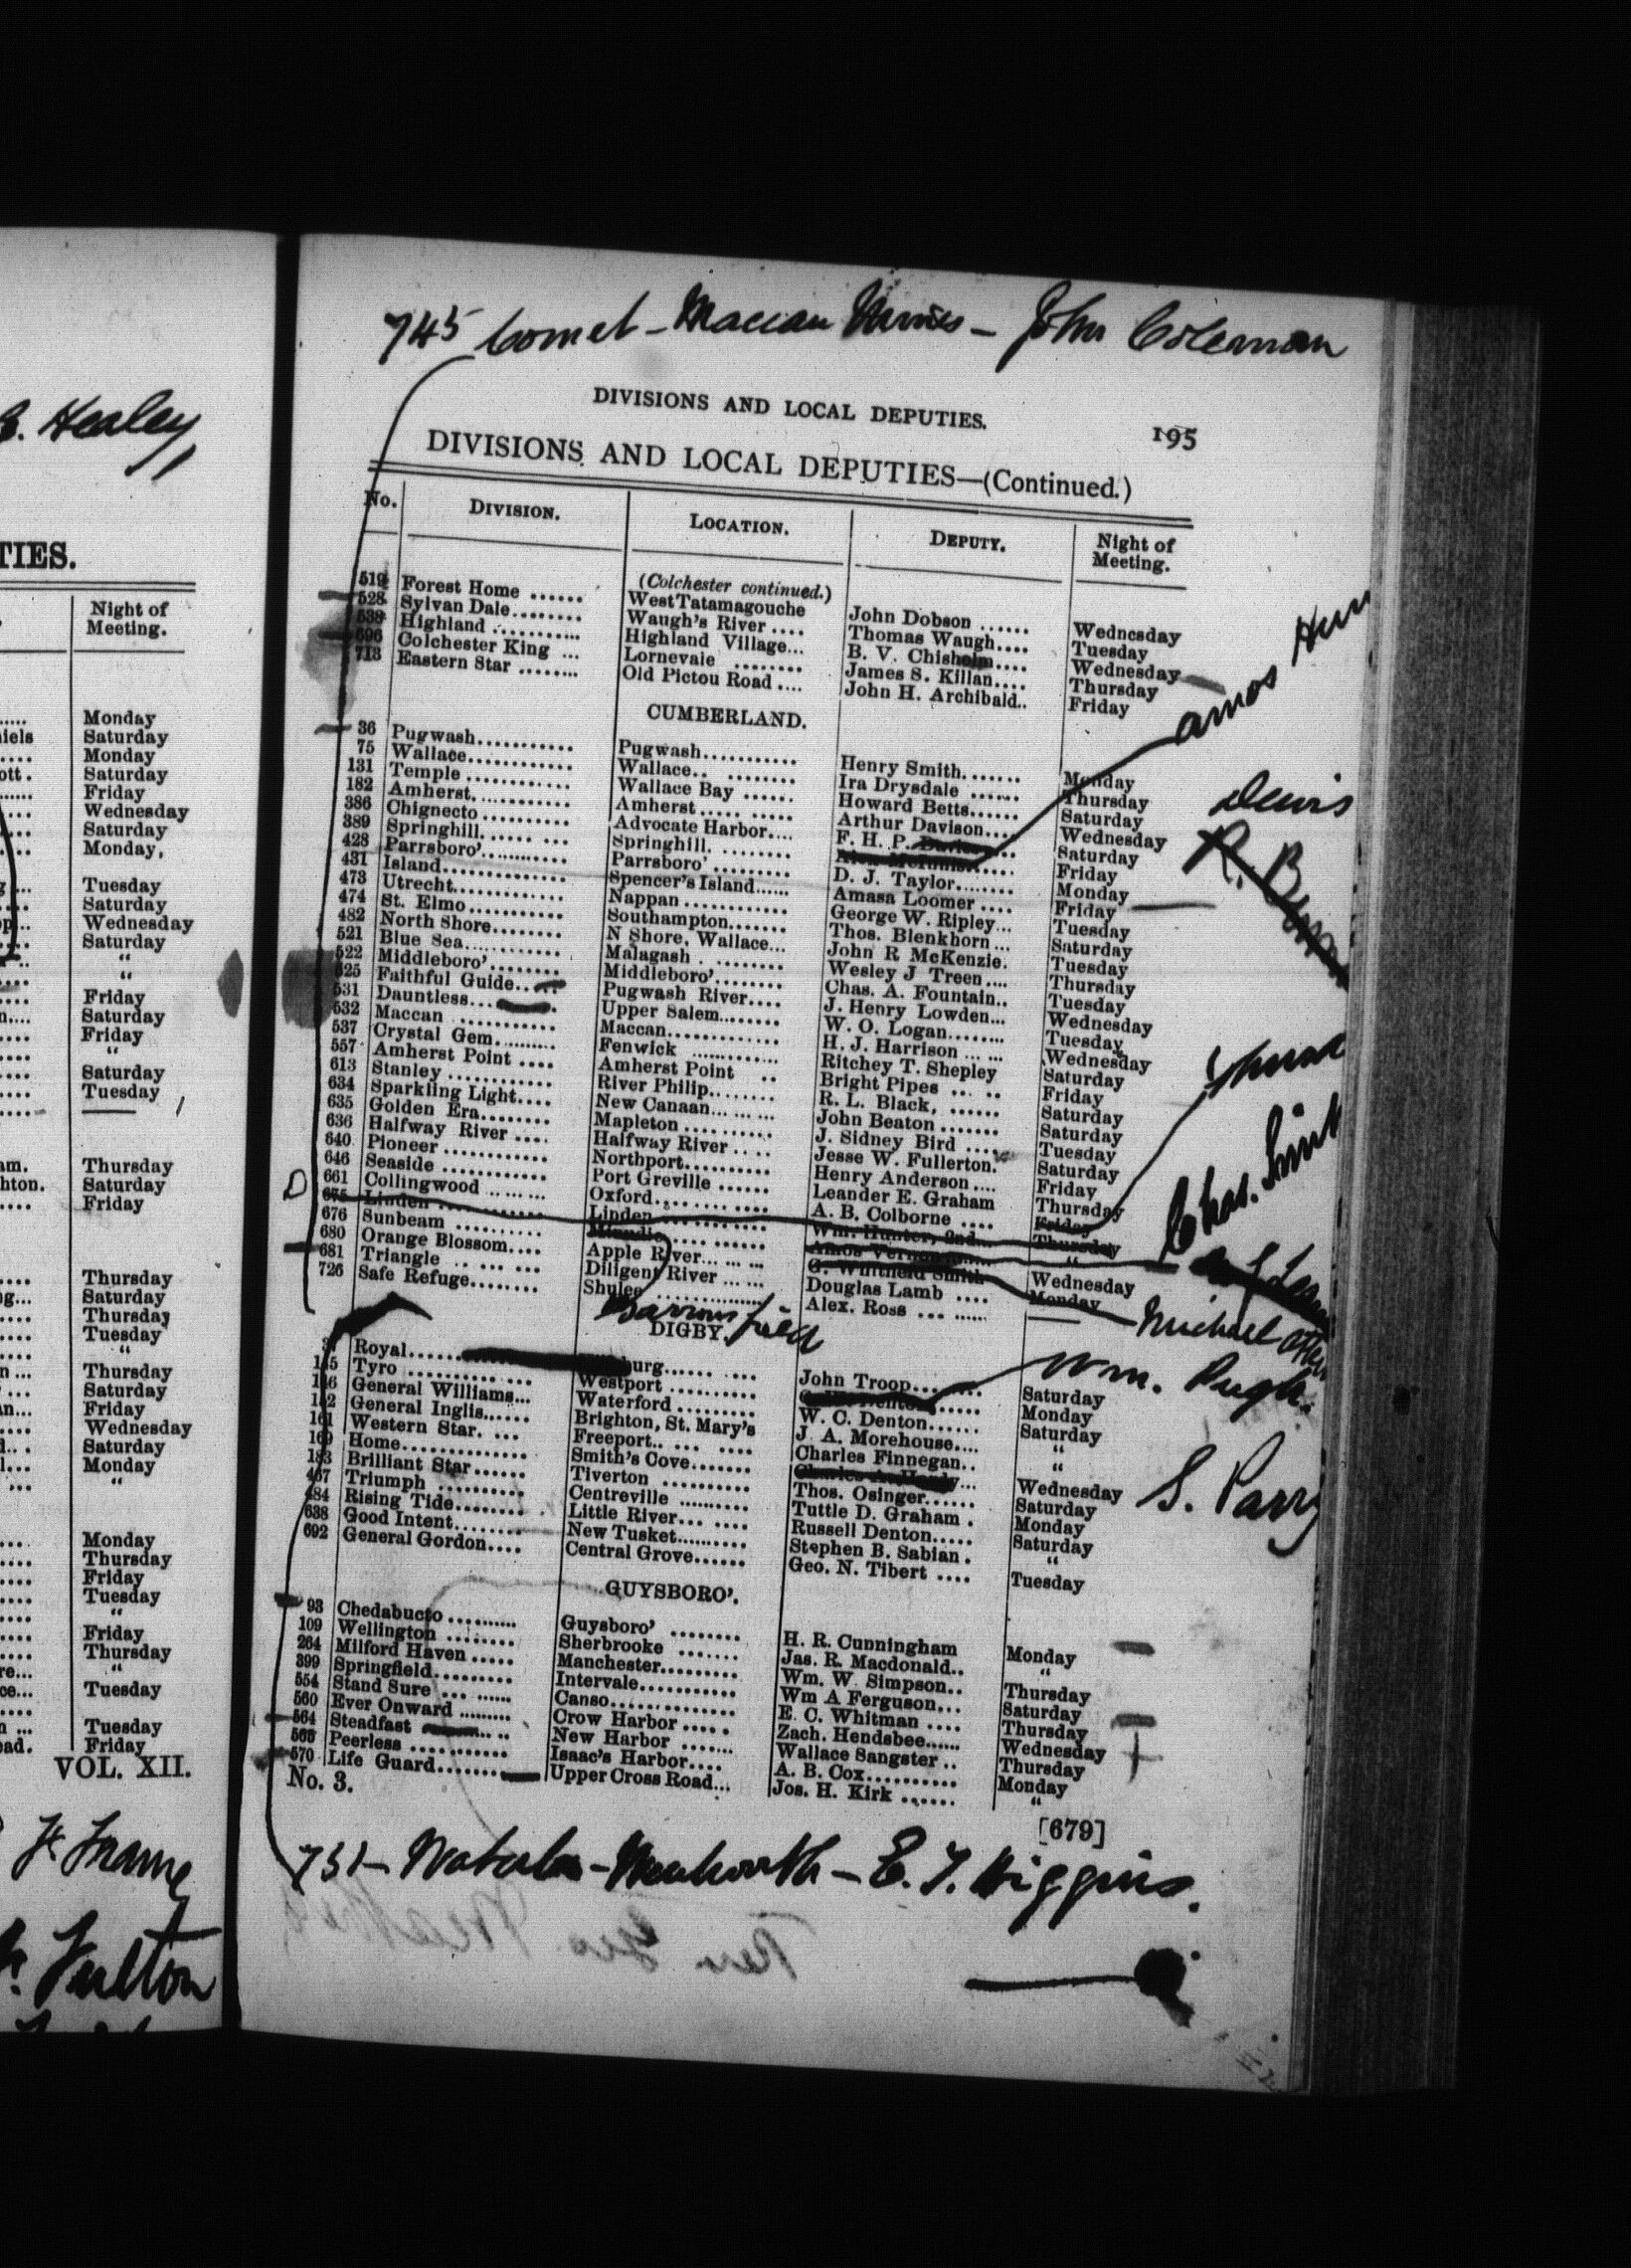 745 Comet - Maccan Mines - John Coleman
DIVISIONS AND LOCAL DEPUTIES. 195
DIVISIONS AND LOCAL DEPUTIES—(Continued.)
No. DIVISION. LOCATION. DEPUTY. Night of Meeting.
(Colchester continued.)
519 Forest Home ...... West Tatamagouche John Dobson ...... Wednesday
528 Sylvan Dale........ Waugh's River .... Thomas Waugh.... Tuesday
538 Highland ........... Highland Village... B. V. Chisholm.... Wednesday
696 Colchester King ... Lornevale ........ James S. Killan.... Thursday
713 Eastern Star ........ Old Pictou Road .... John H. Archibald.. Friday
CUMBERLAND.
36 Pugwash........... Pugwash........... Henry Smith....... Monday
75 Wallace............ Wallace.. ........ Ira Drysdale ...... Thursday
131 Temple ........... Wallace Bay ...... Howard Betts...... Saturday
182 Amherst............ Amherst..... ..... Arthur Davison.... Wednesday
386 Chignecto .......... Advocate Harbor.... F. H. P. Saturday
389 Springhill...... ... Springhill. ........ Friday
428 Parrsboro'........... Parrsboro' ......... D. J. Taylor........ Monday
431 Island.............. Spencer's Island...... Amasa Loomer .... Friday
473 Utrecht............ Nappan ............ George W. Ripley... Tuesday
474 St. Elmo........... Southampton....... Thos. Blenkhorn ... Saturday
482 North Shore........ N Shore, Wallace... John R McKenzie. Tuesday
521 Blue Sea........... Malagash . ........ Wesley J Treen .... Thursday
522 Middleboro'........ Middleboro'........ Chas. A. Fountain.. Tuesday
525 Faithful Guide...... Pugwash River.... J. Henry Lowden... Wednesday
531 Dauntless... Upper Salem........ W. O. Logan........ Tuesday
532 Maccan ........... Maccan............ H. J. Harrison ... ... Wednesday
537 Crystal Gem.......... Fenwick ............. Ritchey T. Shepley Saturday
557 Amherst Point .... Amherst Point .. Bright Pipes ... .. Friday
613 Stanley ............ River Philip........ R. L. Black, ...... Saturday
634 Sparkling Light.... New Canaan... ... ... John Beaton ....... Saturday
635 Golden Era....... Mapleton .......... J. Sidney Bird .... Tuesday
636 Halfway River .... Halfway River .. .. Jesse W. Fullerton. Saturday
640 Pioneer ............ Northport.......... Henry Anderson .... Friday
646 Seaside ........... Port Greville ...... Leander E. Graham Thursday
D 661 Collingwood ... ... ... Oxford.... .... .... A. B. Colborne .... Friday
675 Linden ... Linden ............ Wm. Hunter, 2nd... Thursday
676 Sunbeam ......... "
680 Orange Blossom.... Apple River... ... ... G. Whitfield Smith Wednesday
681 Triangle .. ... ... Diligent River ... ... Douglas Lamb .... Monday
726 Safe Refuge........ Shulee .............. Alex. Ross ... ......
DIGBY.
37 Royal...... John Troop........ Saturday
145 Tyro .............. Westport .......... Monday
146 General Williams... Waterford ......... W. C. Denton...... Saturday
152 General Inglis...... Brighton, St. Mary's J. A. Morehouse.... "
161 Western Star. ... Freeport.. ... .... Charles Finnegan.. "
169 Home.............. Smith's Cove....... Wednesday
183 Brilliant Star...... Tiverton .......... Thos. Osinger...... Saturday
467 Triumph .......... Centreville .......... Tuttle D. Graham . Monday
484 Rising Tide........ Little River... .... Russell Denton..... Saturday
638 Good Intent........ New Tusket......... Stephen B. Sabian . "
692 General Gordon.... Central Grove...... Geo. N. Tibert .... Tuesday
GUYSBORO'.
93 Chedabucto .......... Guysboro' ........ H. R. Cunningham Monday
109 Wellington ........ Sherbrooke ....... Jas. R. Macdonald.. "
264 Milford Haven ..... Manchester......... Wm. W. Simpson.. Thursday
399 Springfield......... Intervale........... Wm A Ferguson... Saturday
554 Stand Sure ... ...... Canso............. E. C. Whitman .... Thursday
560 Ever Onward ......... Crow Harbor ..... Zach. Hendsbee...... Wednesday
564 Steadfast New Harbor ....... Wallace Sangster .. Thursday
565 Peerless ........... Isaac's Harbor.... A. B. Cox.......... Monday
570 Life Guard........ Upper Cross Road... Jos. H. Kirk ...... "
No. 3.
[679]
E. Higgins.
Amos
Lewis
Chas. Smith
Michael
Wm. Pugh.
S. Parry
Healey
TIES.
Night of Meeting.
Monday
Saturday
Monday
Saturday
Friday
Wednesday
Saturday
Monday,
Tuesday
Saturday
Wednesday
Saturday
"
"
Friday
Saturday
Friday
"
Saturday
Tuesday
Thursday
Saturday
Friday
Thursday
Saturday
Thursday
Tuesday
"
Thursday
Saturday
Friday
Wednesday
Saturday
Monday
"
Monday
Thursday
Friday
Tuesday
"
Friday
Thursday
"
Tuesday
Tuesday
Friday
VOL. XII.
Frame
Fulton